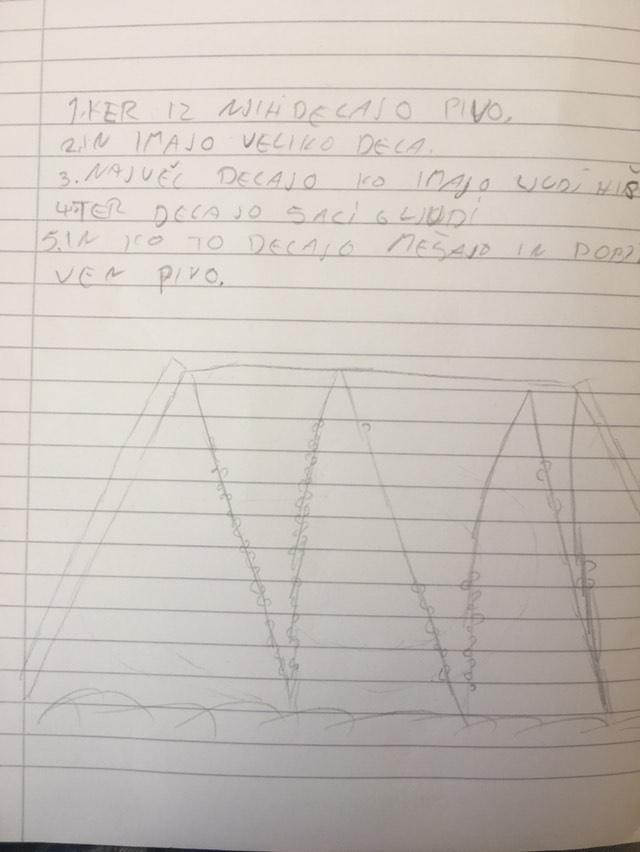 1. KER IZ NJIH DELAJO PIVO.
2. IN IMAJO VELIKO DELA.
3. NAJVEČ DELAJO KO IMAJO LJUDI HIŠ
4. TER DELAJO 5 ALI 6 LJUDI
5. IN KO TO DELAJO MEŠAJO IN
VEN PIVO.